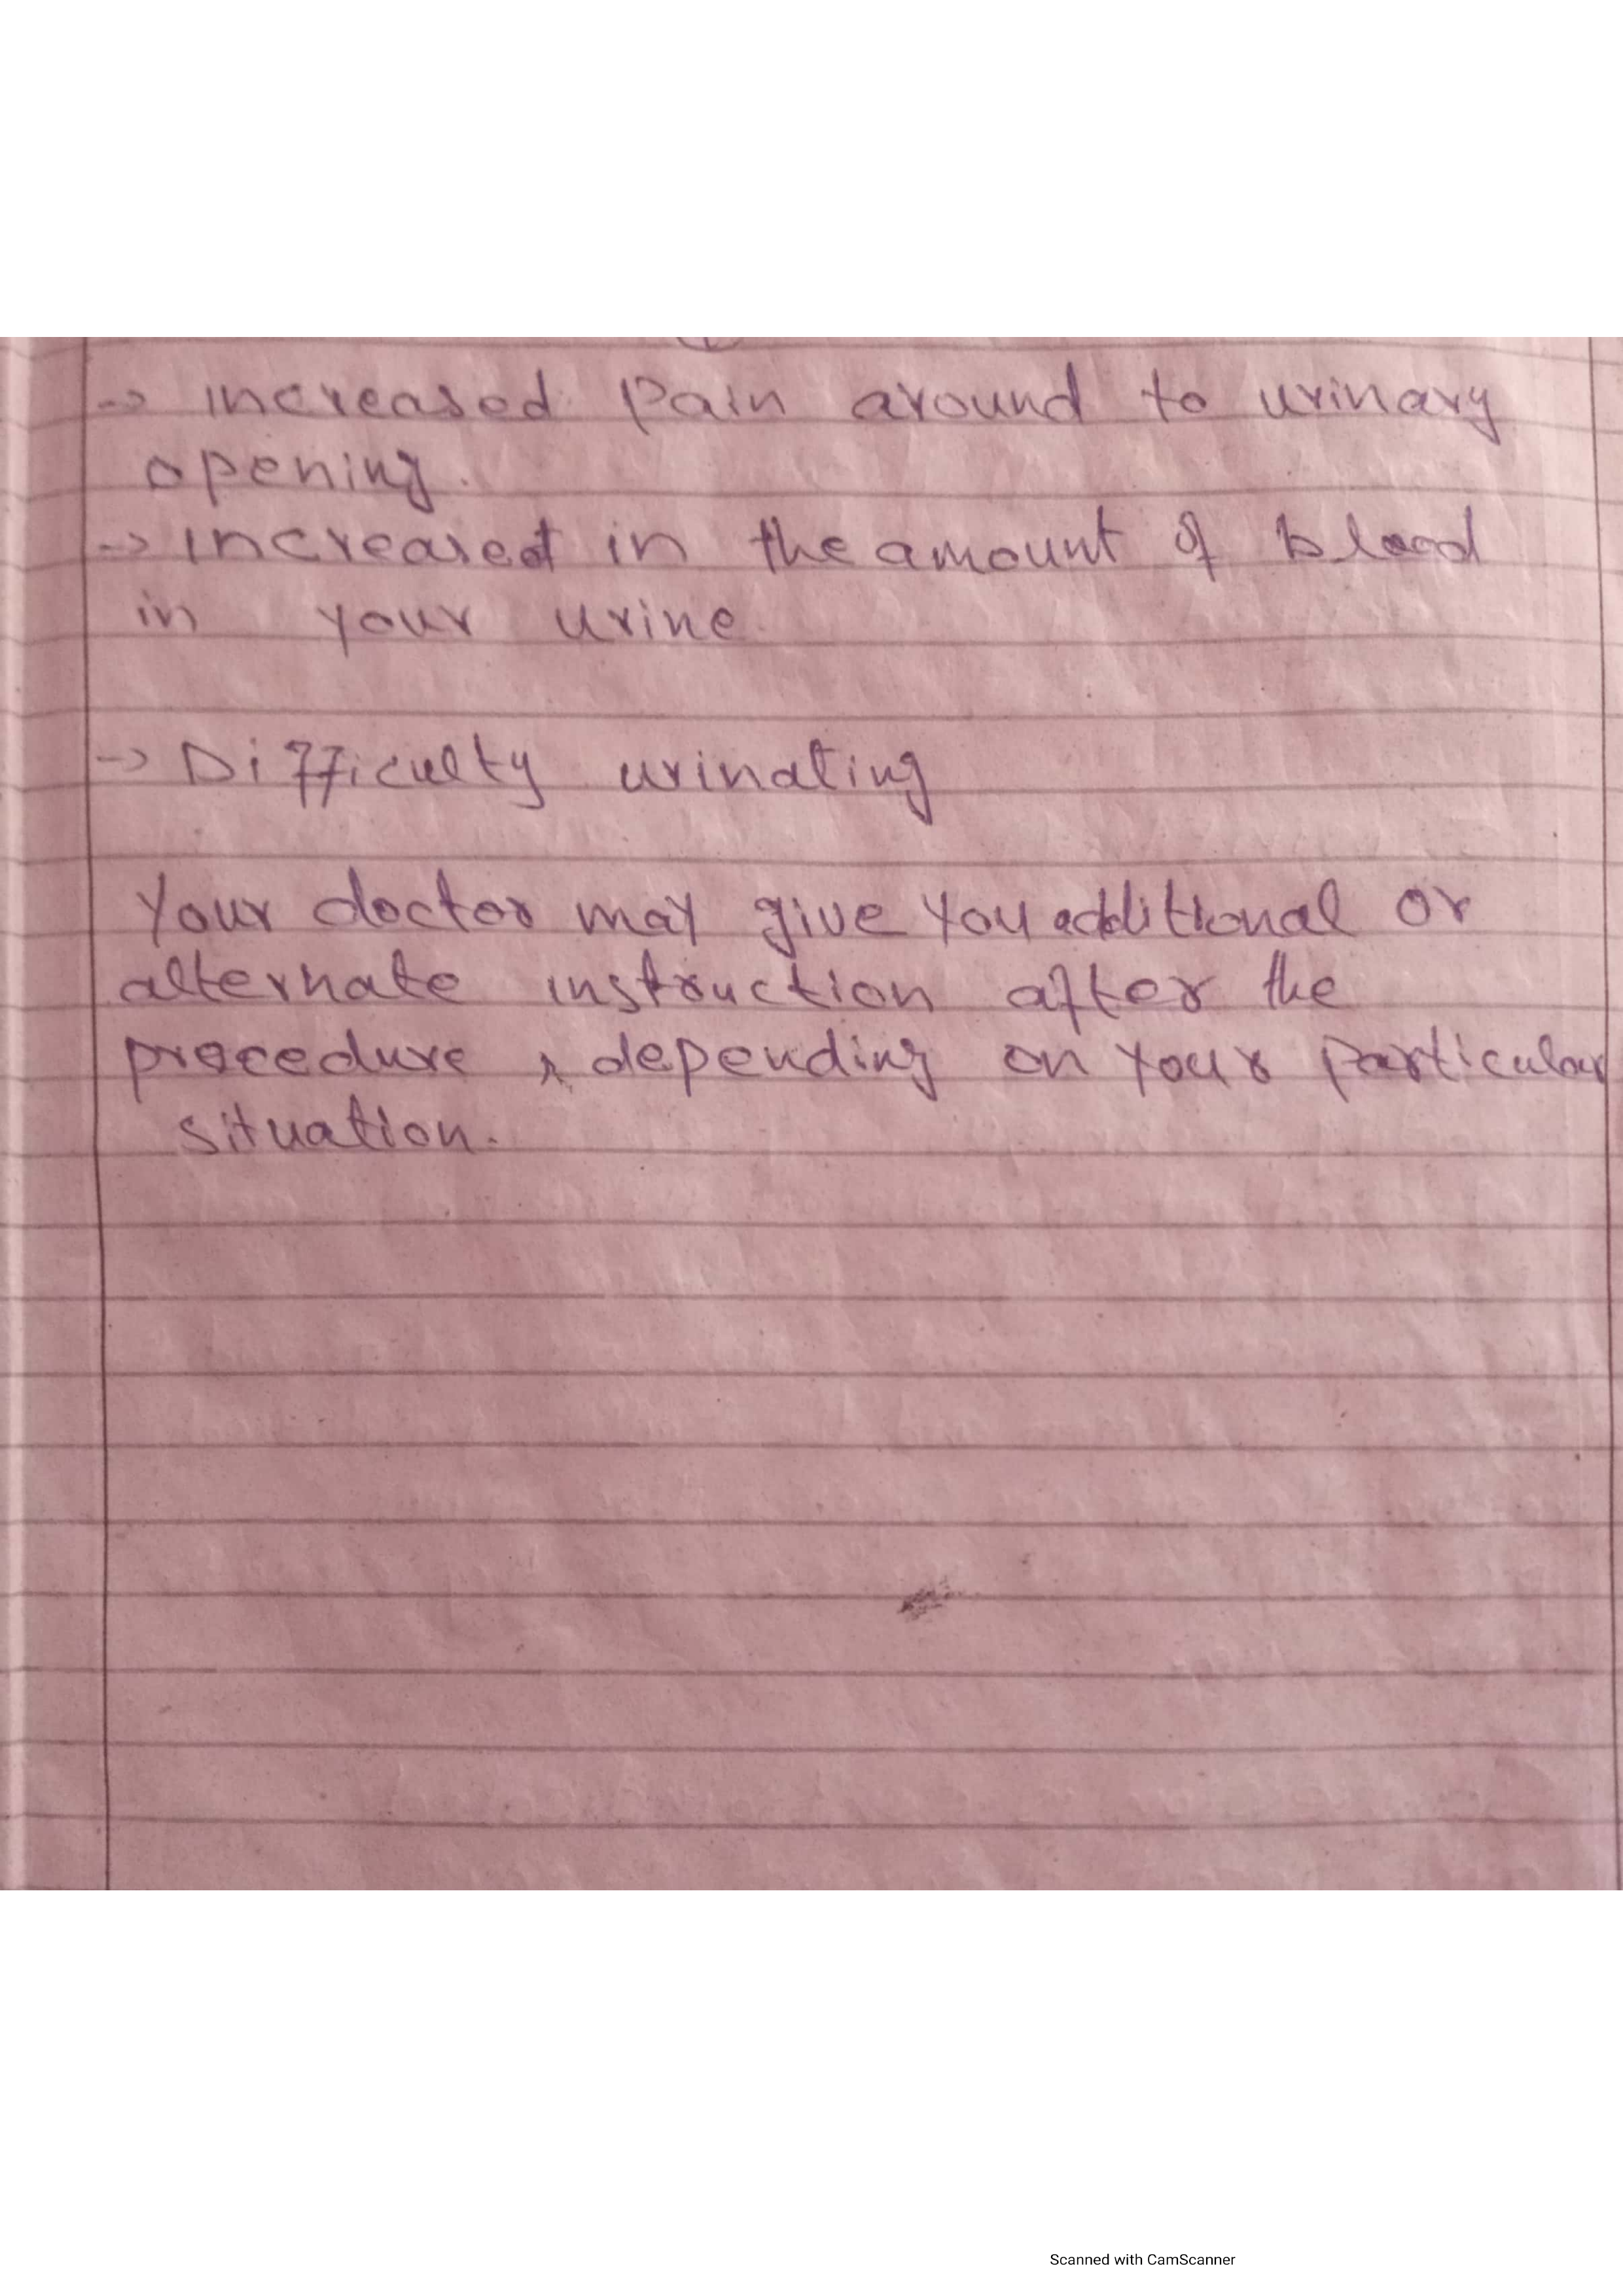 -> increased pain around to urinary
opening.
-> increased in the amount of blood
in your urine.
-> Difficulty urinating
Your doctor may give you additional or
alternate instruction after the
procedure, depending on your particular
situation.
Scanned with CamScanner